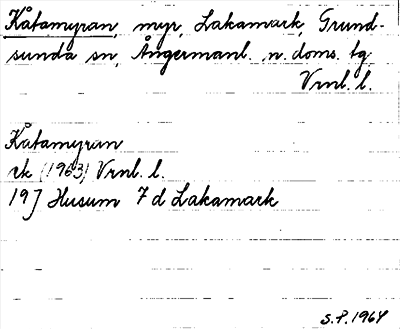 Kåtamyran, myr, Lakamark, Grund-
sunda sn, Ångermanl. n. doms. tg
Vrnl. l.
Kåtamyran
rk (1963) Vrnl. l.
19J Husum 7d Lakamark
S.P. 1964